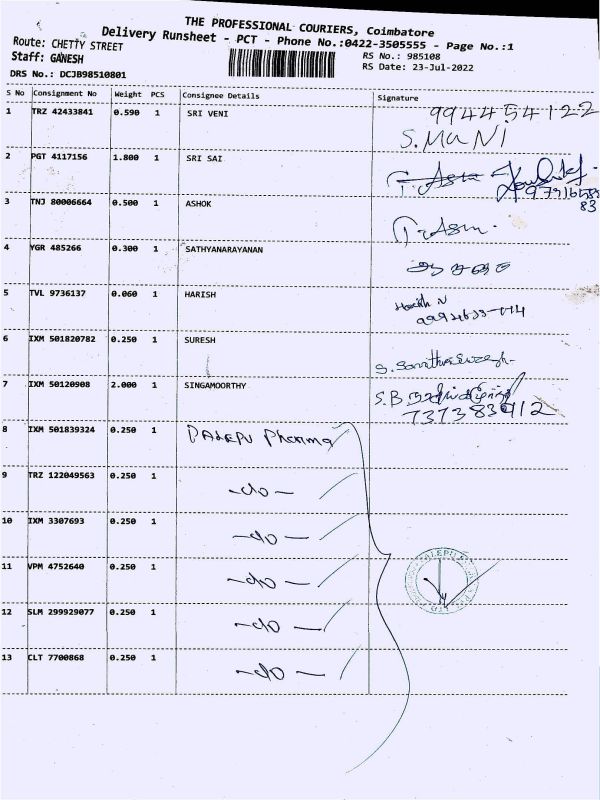 THE PROFESSIONAL COURIERS, Coimbatore
Delivery Runsheet - PCT - Phone No.:0422-3505555 - Page No.:1
Route: CHETTY STREET
Staff: GANESH
RS No.: 985108
RS Date: 23-Jul-2022
DRS No.: DCJB98510801
S No Consignment No Weight PCS Consignee Details Signature
1 TRZ 42433841 0.590 1 SRI VENI 9944454122
S.MANI
2 PGT 4117156 1.800 1 SRI SAI
3 TNJ 80006664 0.500 1 ASHOK
4 YGR 485266 0.300 1 SATHYANARAYANAN
5 TVL 9736137 0.060 1 HARISH Harish N
6 IXM 501820782 0.250 1 SURESH
7 IXM 50120908 2.000 1 SINGAMOORTHY S.B
8 IXM 501839324 0.250 1 DALEPU Pharma
9 TRZ 122049563 0.250 1 -do-
10 IXM 3307693 0.250 1 -do-
11 VPM 4752640 0.250 1 -do-
12 SLM 299929077 0.250 1 -do-
13 CLT 7700868 0.250 1 -do-